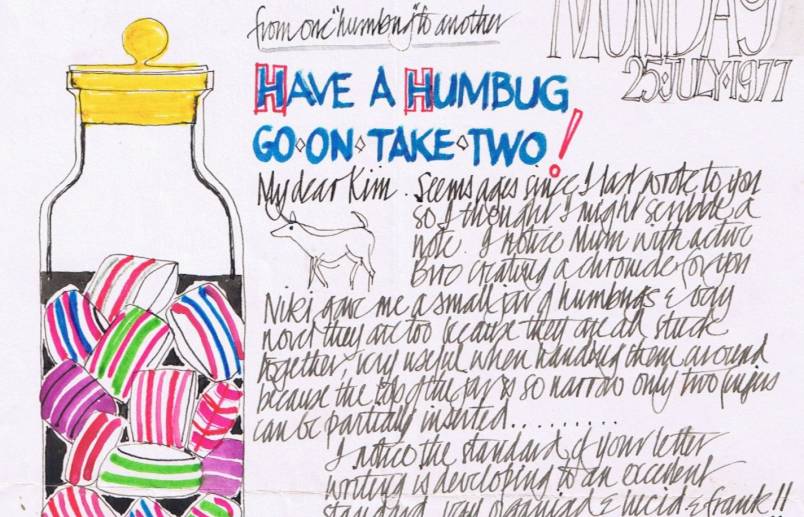 from one "humbug" to another
MONDAY
25·JULY·1977
HAVE A HUMBUG
GO·ON·TAKE·TWO!
My dear Kim. Seems ages since I last wrote to you
so I thought I might scribble a
note. I notice Mum with active
Biro creating a chronicle for you
Niki gave me a small jar of humbugs & very
novel they are too because they are all stuck
together, very useful when handing them around
because the top of the jar is so narrow only two fingers
can be partially inserted..........
I notice the standard of your letter
writing is developing to an excellent
standard, very organized & lucid & frank!!